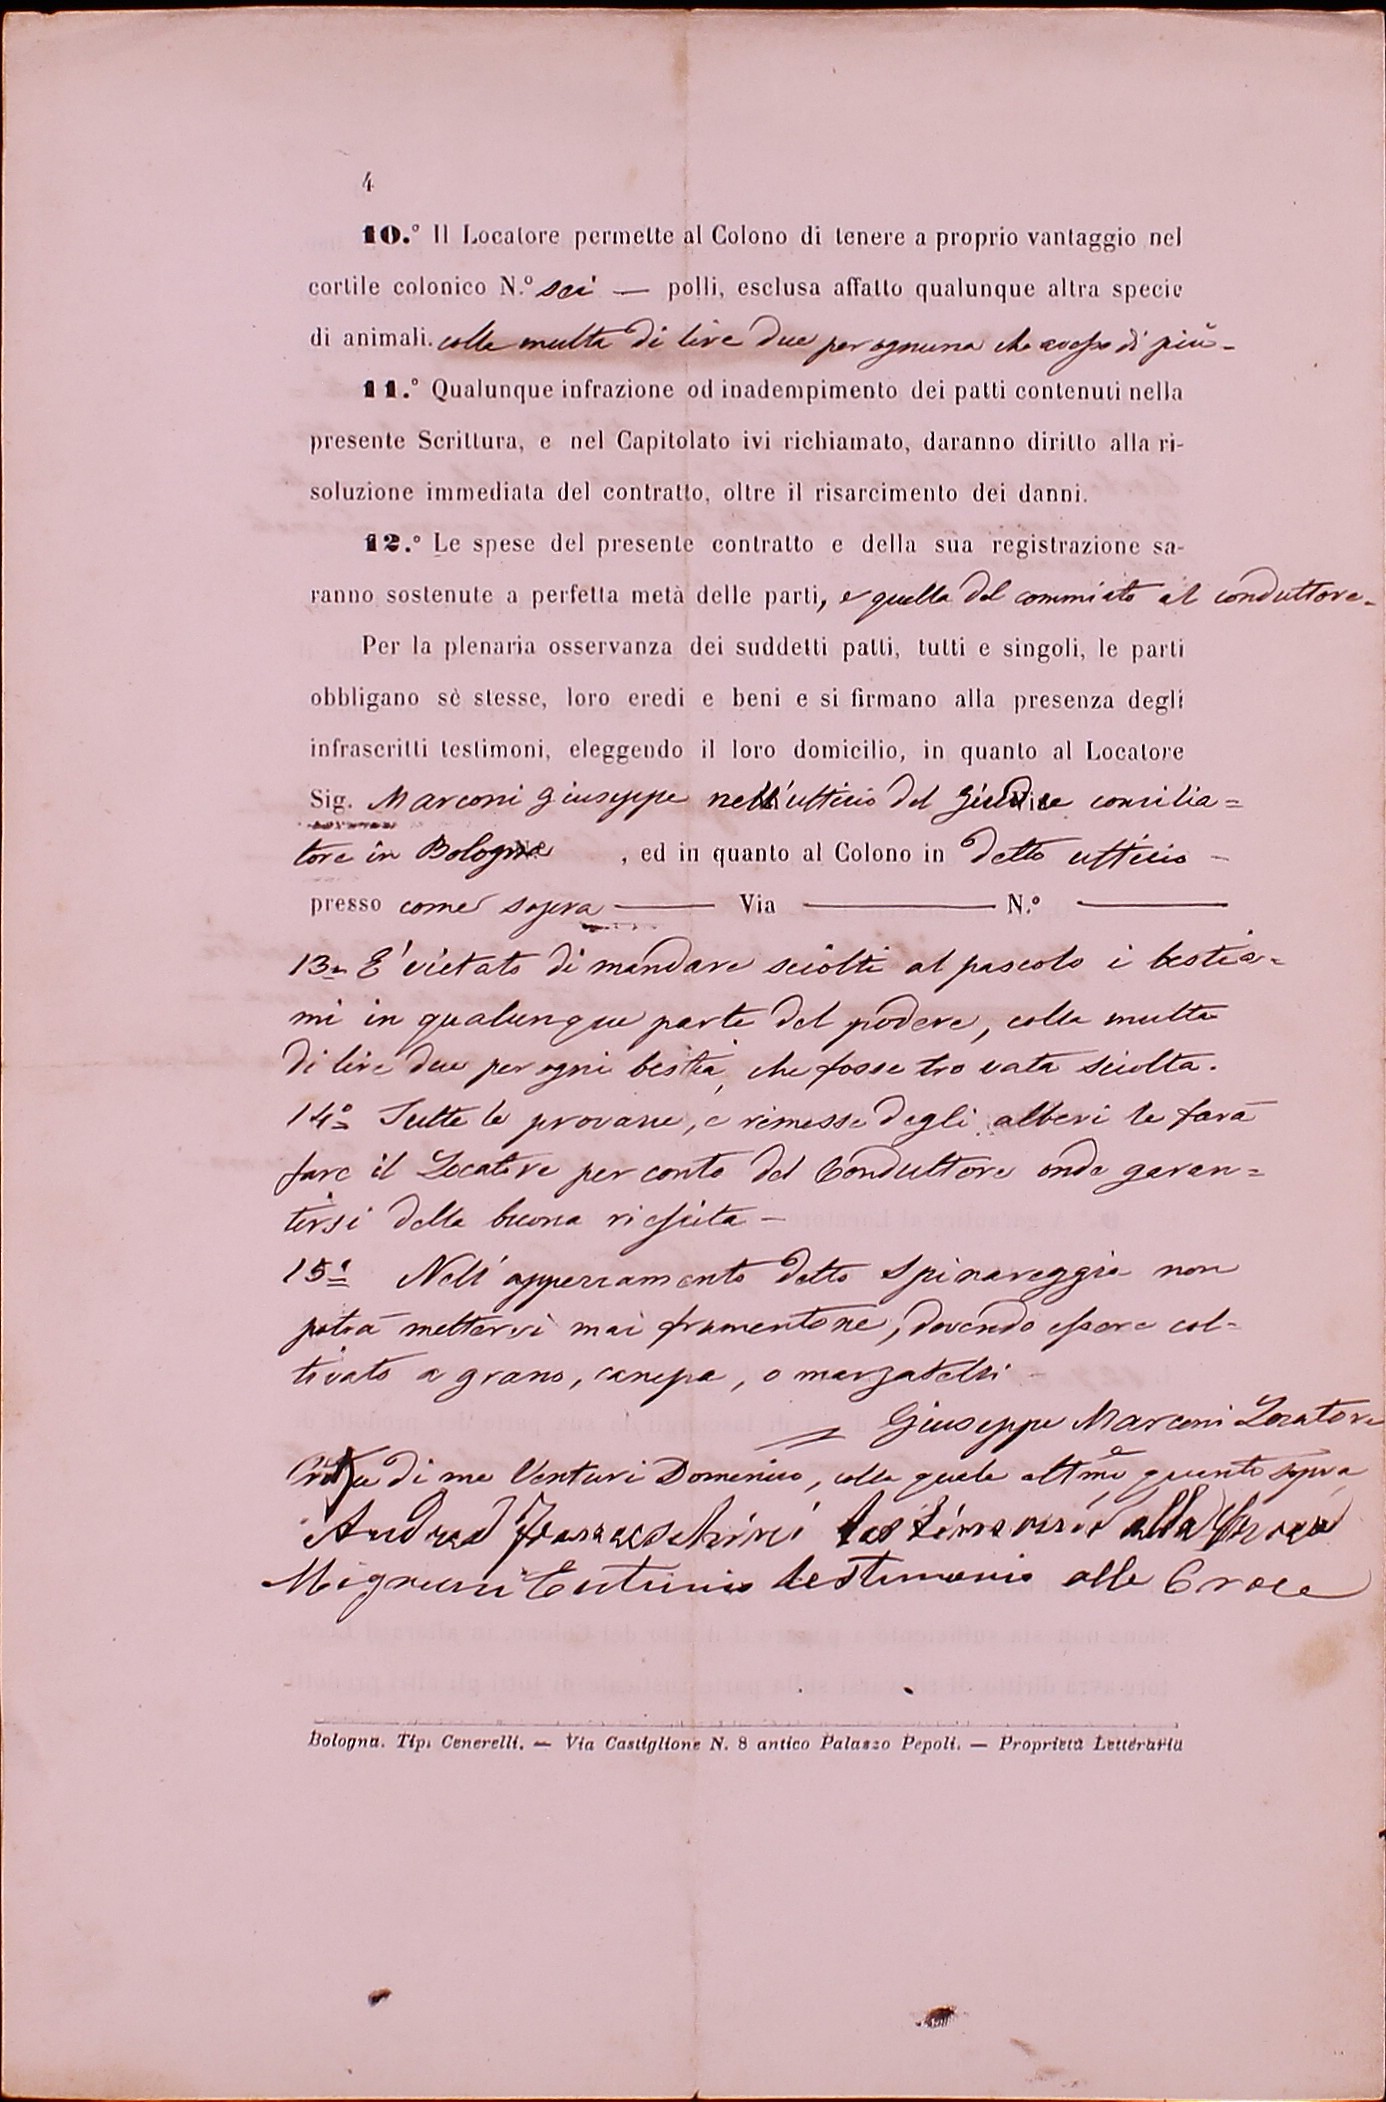 4
10.° Il Locatore permette al Colono di tenere a proprio vantaggio nel
cortile colonico N.° sei — polli, esclusa affatto qualunque altra specie
di animali. colla multa di lire due per ognuna che avesse di più -
11.° Qualunque infrazione od inadempimento dei patti contenuti nella
presente Scrittura, e nel Capitolato ivi richiamato, daranno diritto alla ri-
soluzione immediata del contratto, oltre il risarcimento dei danni.
12.° Le spese del presente contratto e della sua registrazione sa-
ranno sostenute a perfetta metà delle parti, e quella del commiato al conduttore -
Per la plenaria osservanza dei suddetti patti, tutti e singoli, le parti
obbligano sè stesse, loro eredi e beni e si firmano alla presenza degli
infrascritti testimoni, eleggendo il loro domicilio, in quanto al Locatore
Sig. Marconi Giuseppe nell'ufficio del Giudice concilia=
tore in Bologna , ed in quanto al Colono in detto ufficio -
presso come sopra — Via — N.° —
13.a E' vietato di mandare sciolti al pascolo i bestia=
mi in qualunque parte del podere, colla multa
di lire due per ogni bestia, che fosse trovata sciolta.
14.° Tutte le provane, e rimesse degli alberi le farà
fare il Locatore per conto del Conduttore onde garan=
tirsi della buona riescita -
15.° Nell'apperzamento detto Spinareggia non
potrà mettervi mai frumentone, dovendo essere col-
tivato a grano, canepa, o marzatelli -
Giuseppe Marconi Locatore
Croce di me Venturi Domenico, colla quale affmo quanto sopra
Andrea testimonio alla Croce
testimonio alla Croce
Bologna. Tip. Cenerelli. — Via Castiglione N. 8 antico Palazzo Pepoli. — Proprietà Letteraria